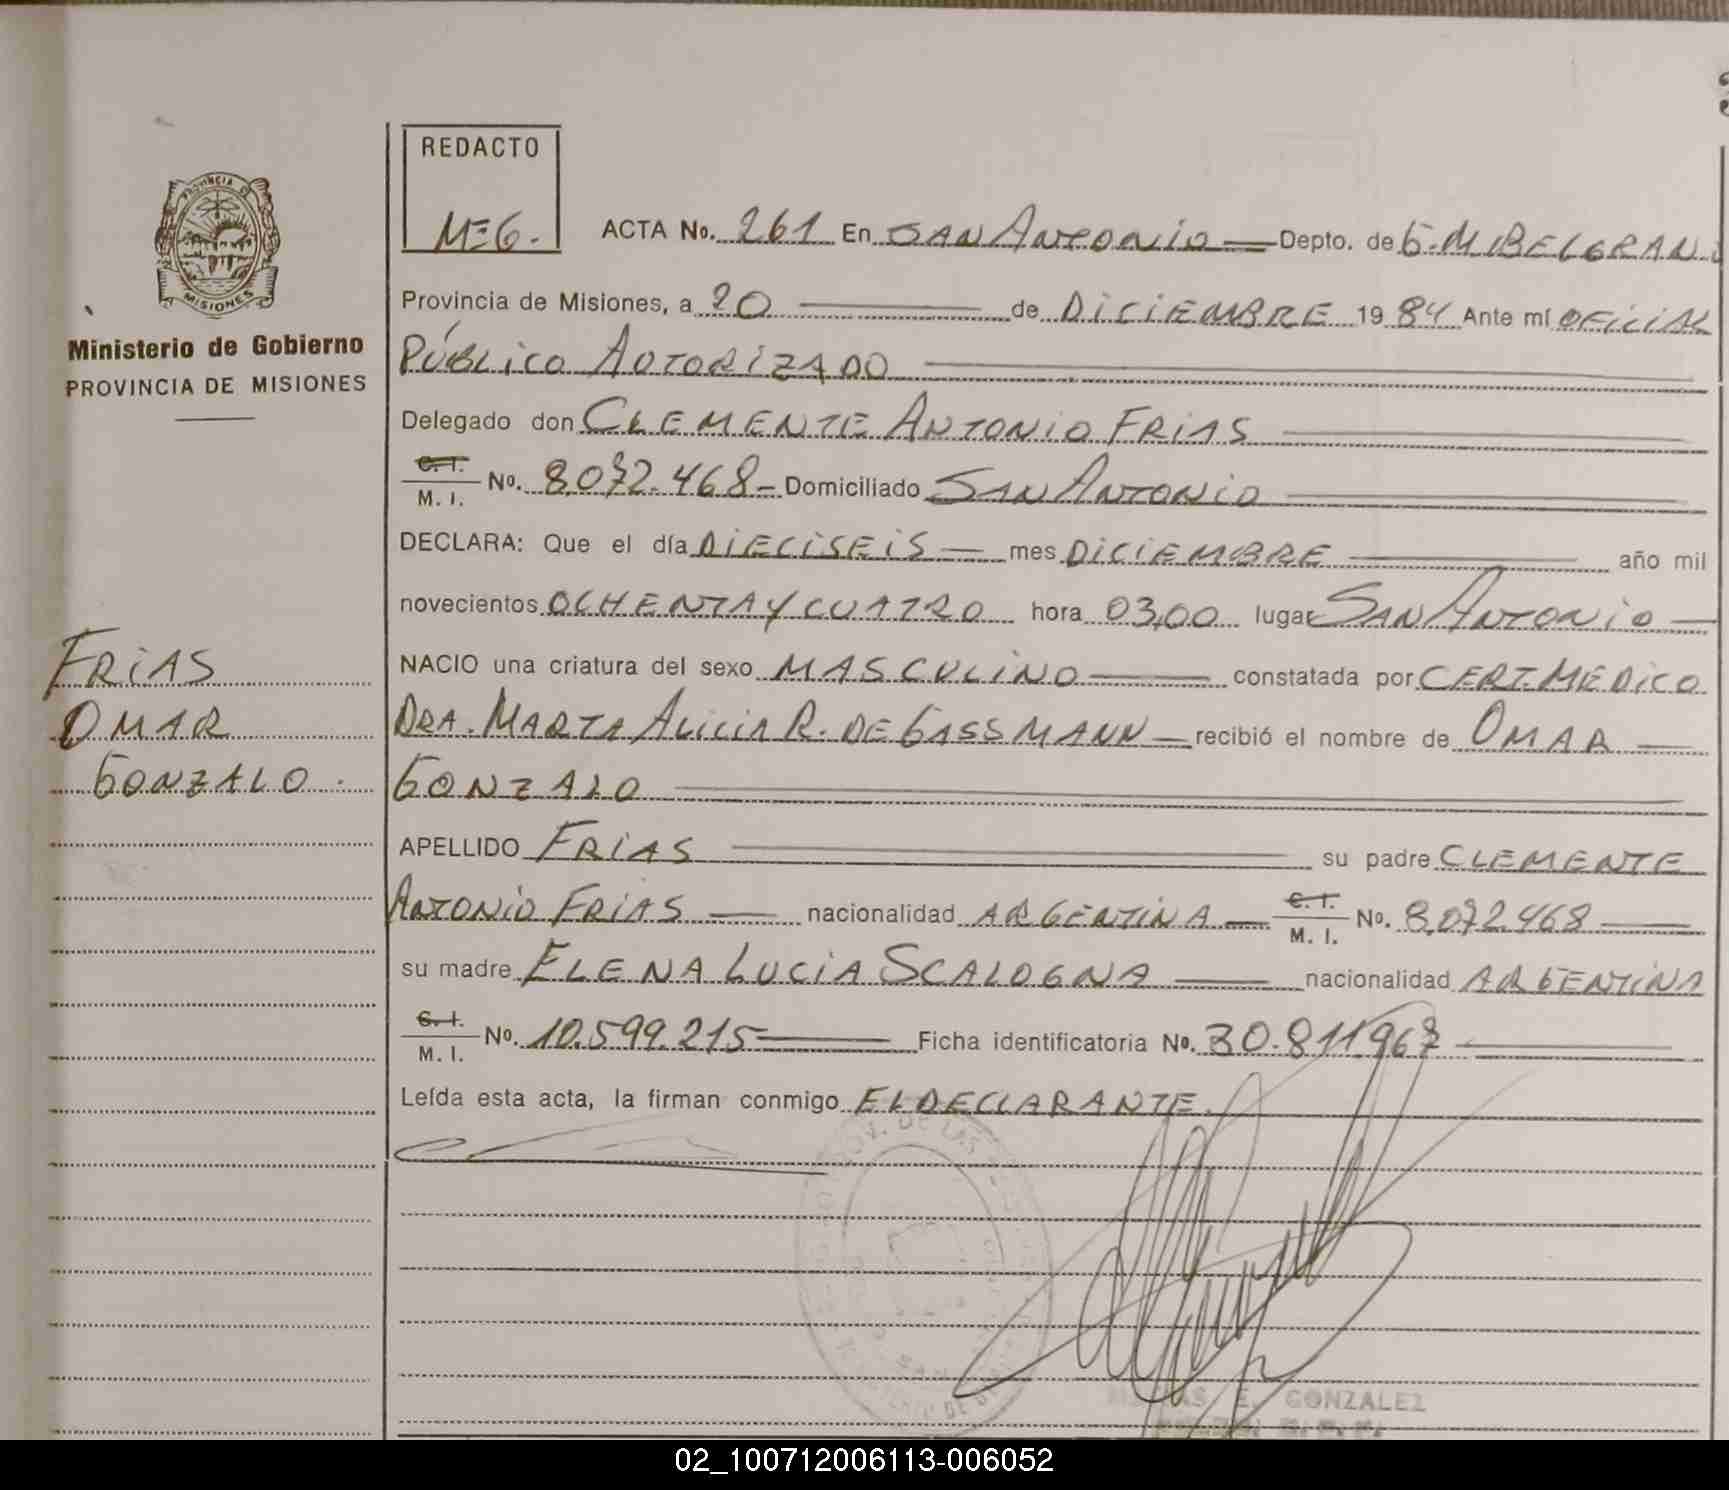 REDACTO
M=G.
ACTA No. 261 En SAN ANTONIO Depto. de G. M. BELGRANO
PROVINCIA DE
MISIONES
Ministerio de Gobierno
PROVINCIA DE MISIONES
Provincia de Misiones, a 20 de DICIEMBRE 1984 Ante mí OFICIAL
PÚBLICO AUTORIZADO
Delegado don CLEMENTE ANTONIO FRIAS
C. I.
M. I. No. 8.072.468 - Domiciliado SAN ANTONIO
DECLARA: Que el día DIECISEIS mes DICIEMBRE año mil
novecientos OCHENTA Y CUATRO hora 03,00 lugar SAN ANTONIO
NACIO una criatura del sexo MASCULINO constatada por CERT. MEDICO
DRA. MARTA ALICIA R. DE GASSMANN recibió el nombre de OMAR
GONZALO
FRIAS
OMAR
GONZALO.
APELLIDO FRIAS su padre CLEMENTE
ANTONIO FRIAS nacionalidad ARGENTINA C. I. M. I. No. 8.072.468
su madre ELENA LUCIA SCALOGNA nacionalidad ARGENTINA
C. I.
M. I. No. 10.599.215 Ficha identificatoria No. 30.811.967
Leída esta acta, la firman conmigo EL DECLARANTE.
PROV. DE LAS
E. GONZALEZ
02_100712006113-006052